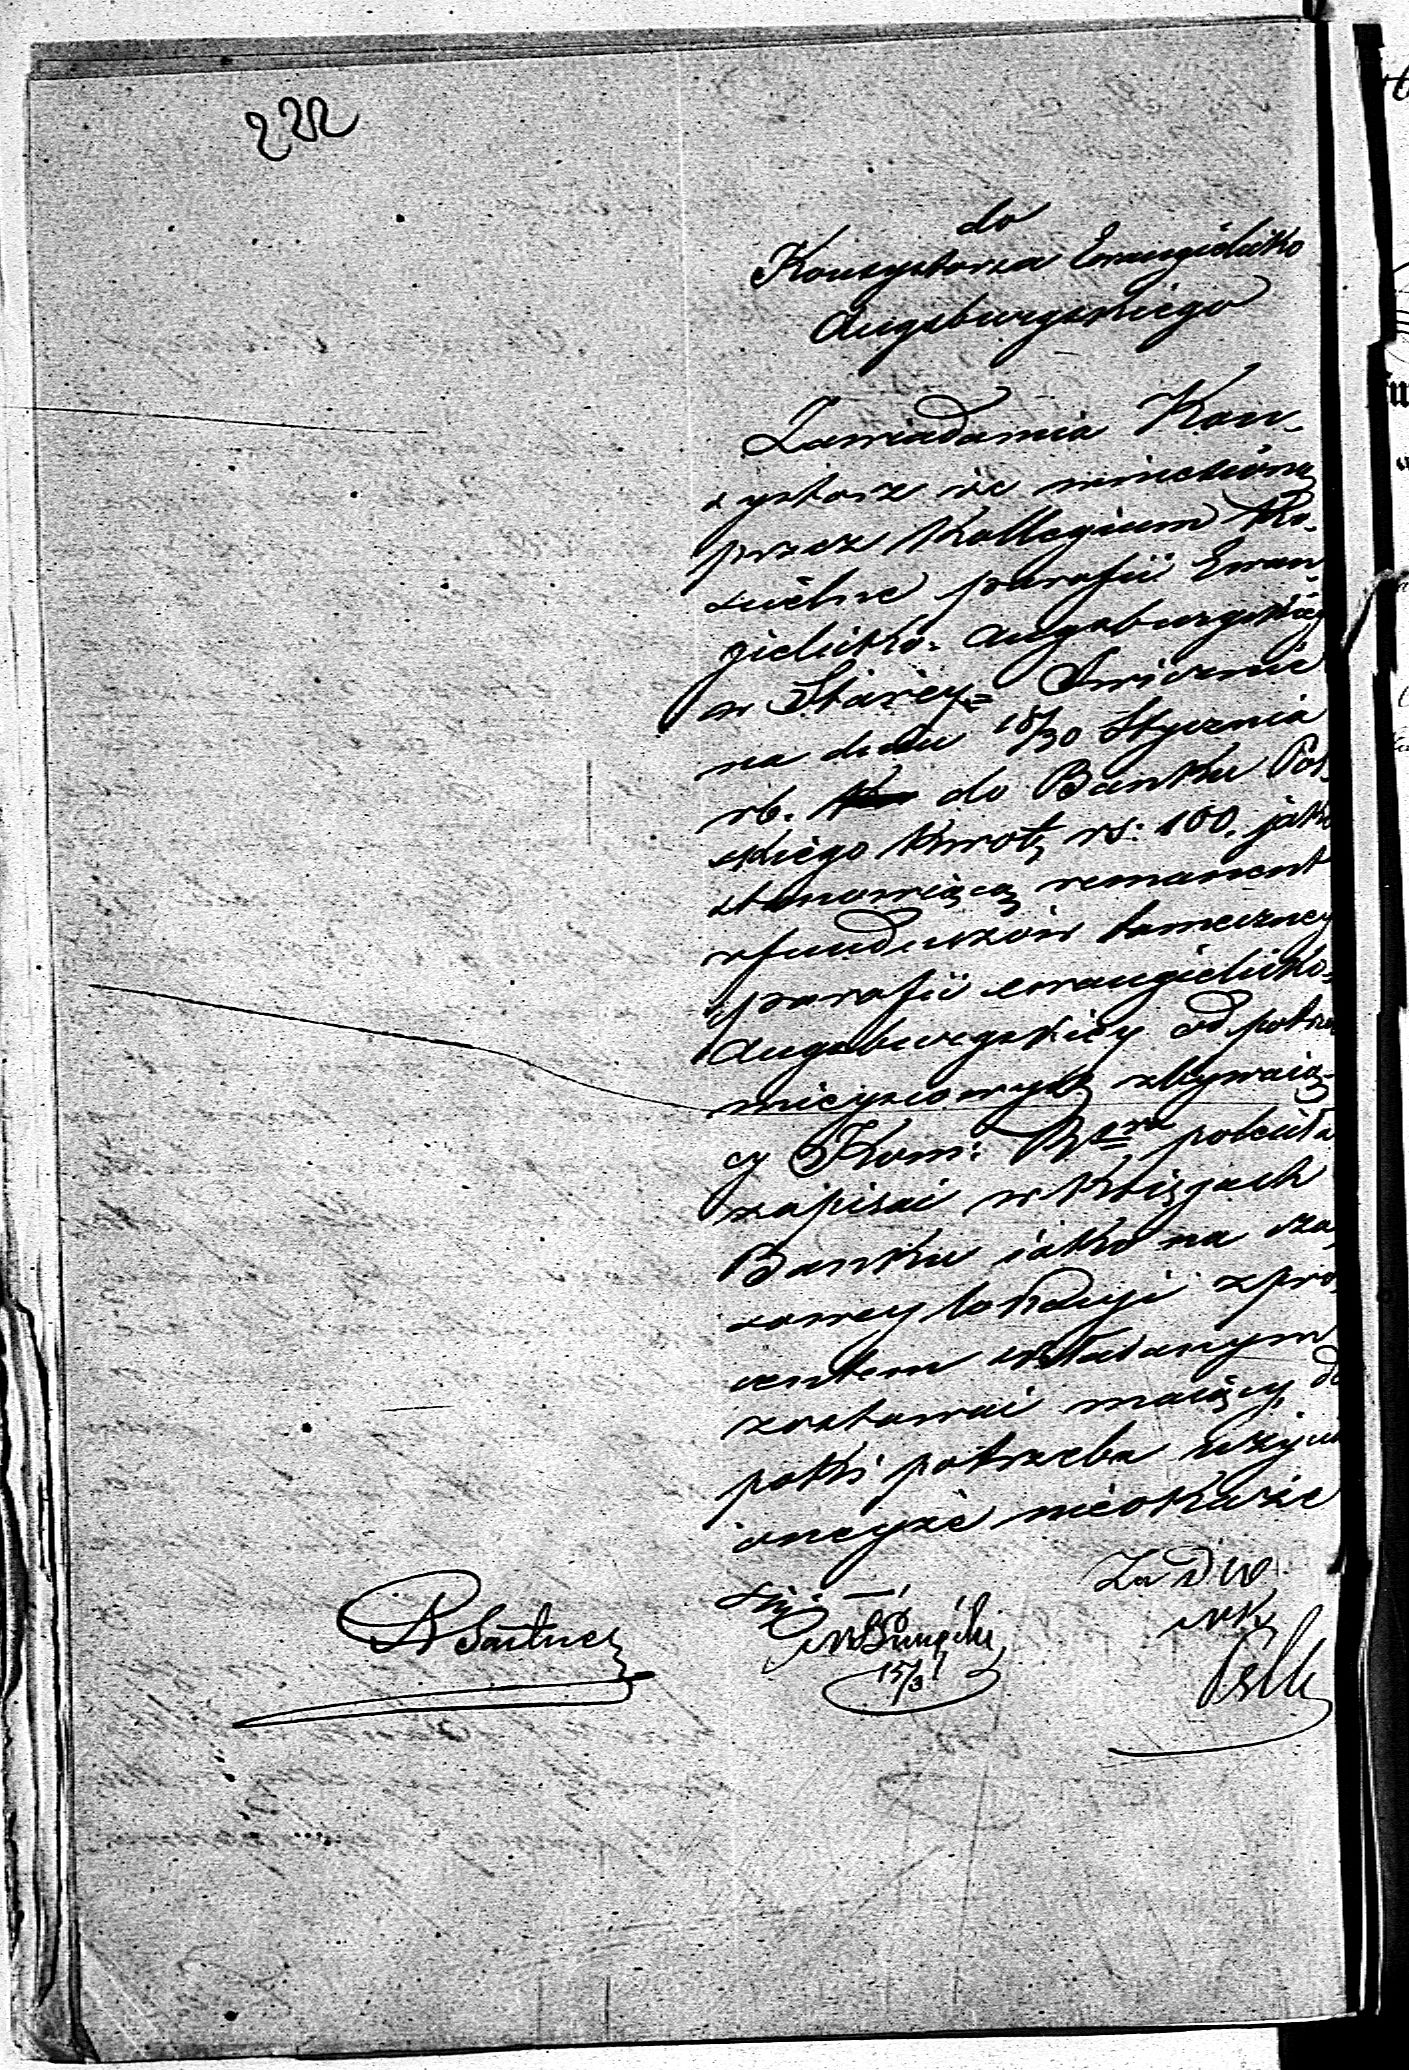 222
do
Konsystorza Ewangielicko
Augsburgskiego
Zawiadamia Kon-
systorz że wniesioną
przez Kollegium Ko-
ścielne parafii Ewan
gielicko-Augsburgskiéy
w Starey= Iwicznie
na dniu 18/30 Stycznia
rb. do Banku Pol
skiego kwotę rs: 100, jako
stanowiącą remanent
z funduszów tameczney
parafii ewangielicko-
Augsburgskiey od potrzeb
mieyscowych zbywaią-
cy Kom: Rzwa poleciła
zapisać w Księgach
Banku iako na cza
sowey lokacyi z pro
centem składanym
zostawać maiący, do
póki potrzeba użycia
oneyże nieokaże
się.
Za D W
15/3